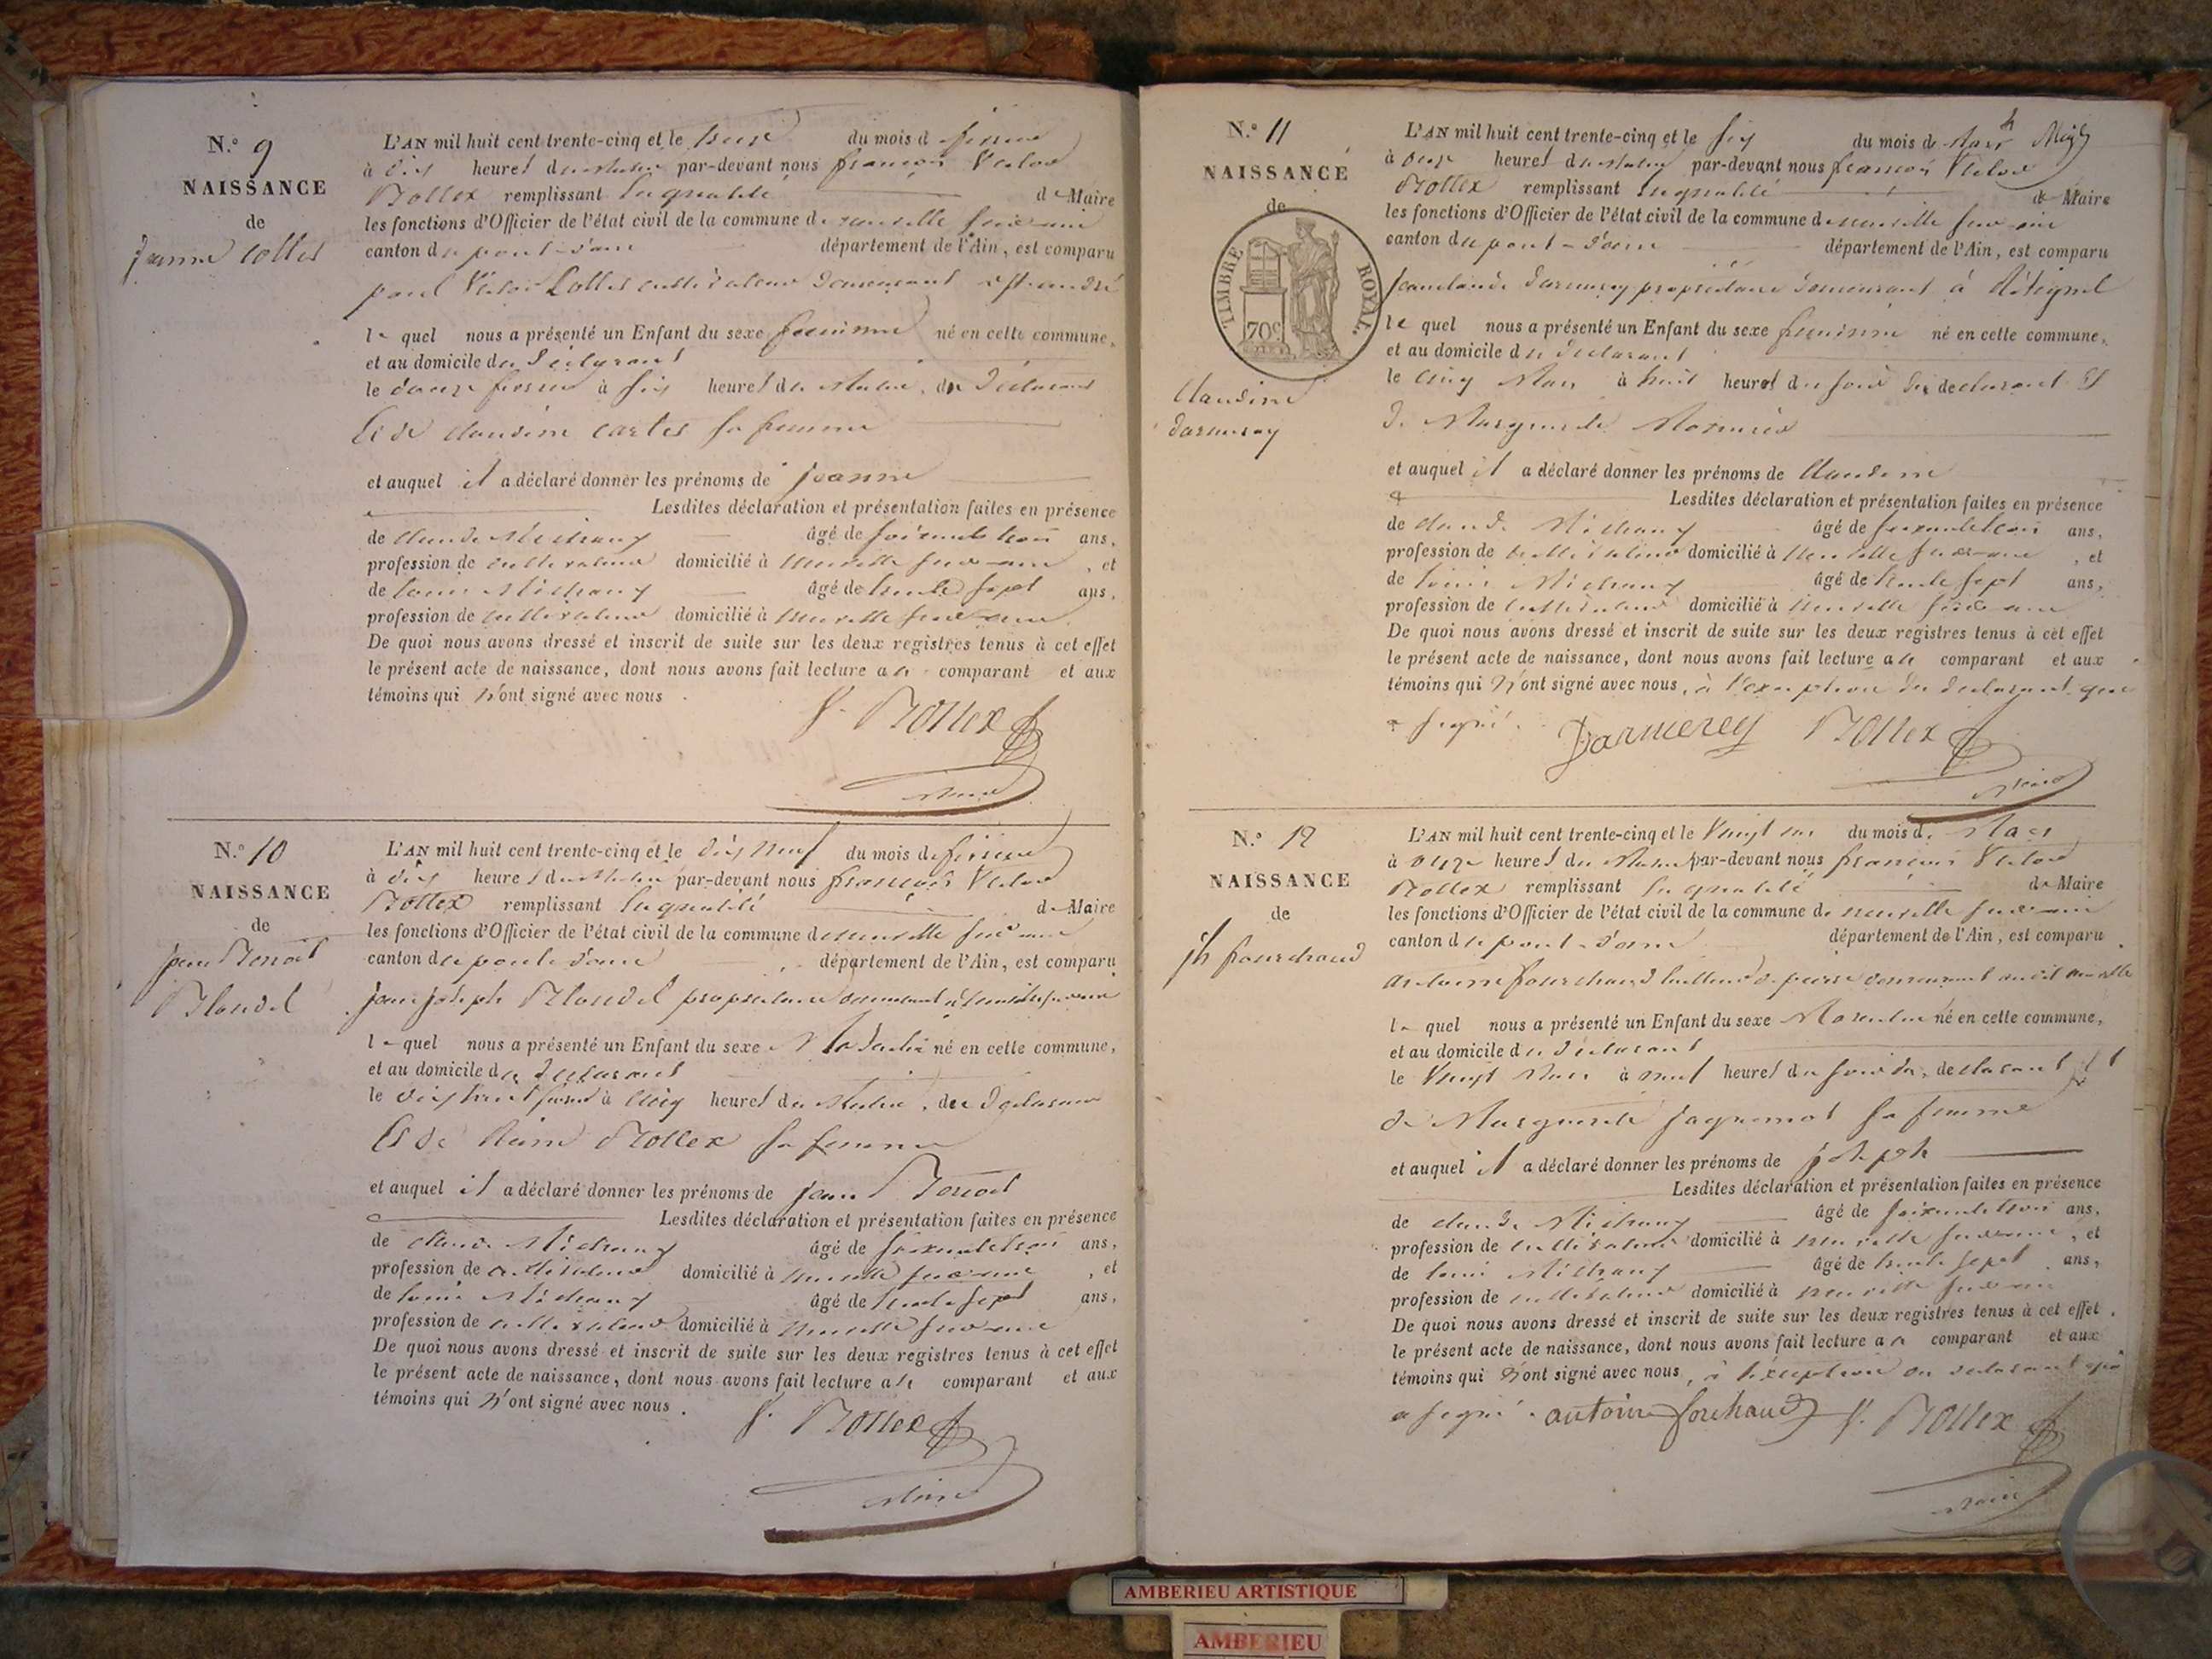 N.º 9
NAISSANCE
de
Jeanne Collet
L'AN mil huit cent trente-cinq et le treize du mois de février
à dix heures du matin par-devant nous françois Victor
Bollex remplissant la qualité de Maire
les fonctions d'Officier de l'état civil de la commune de neuville sur ain
canton de pont-d'ain département de l'Ain, est comparu
paul Victor Collet cultivateur demeurant
le quel nous a présenté un Enfant du sexe feminin né en cette commune,
et au domicile du déclarant
le douze fevrier à six heures du Matin, du Déclarant
Et de claudine cartet sa femme
et auquel il a déclaré donner les prénoms de jeanne
Lesdites déclaration et présentation faites en présence
de claude Michaux âgé de soixante trois ans,
profession de cultivateur domicilié à Neuville sur ain, et
de louis Michaux âgé de trente sept ans,
profession de cultivateur domicilié à Neuville sur ain
De quoi nous avons dressé et inscrit de suite sur les deux registres tenus à cet effet
le présent acte de naissance, dont nous avons fait lecture au comparant et aux
témoins qui n'ont signé avec nous.
f. Bollex
Maire
N.º 10
NAISSANCE
de
jean Benoit
Blondel
L'AN mil huit cent trente-cinq et le dix neuf du mois de fevrier
à dix heures du Matin par-devant nous françois Victor
Bollex remplissant la qualité de Maire
les fonctions d'Officier de l'état civil de la commune de neuville sur ain
canton de pont d'ain département de l'Ain, est comparu
jean joseph Blondel propriétaire demeurant à Neuville sur ain
le quel nous a présenté un Enfant du sexe Masculin né en cette commune,
et au domicile du déclarant
le dix huit fevrier à cinq heures du Matin, du Déclarant
Et de Bollex sa femme
et auquel il a déclaré donner les prénoms de jean Benoit
Lesdites déclaration et présentation faites en présence
de claude Michaux âgé de soixante trois ans,
profession de cultivateur domicilié à Neuville sur ain, et
de louis Michaux âgé de trente sept ans,
profession de cultivateur domicilié à Neuville sur ain
De quoi nous avons dressé et inscrit de suite sur les deux registres tenus à cet effet
le présent acte de naissance, dont nous avons fait lecture au comparant et aux
témoins qui n'ont signé avec nous.
f. Bollex
Maire
N.º 11
NAISSANCE
de
TIMBRE ROYAL.
70c
Claudine
Darmerey
L'AN mil huit cent trente-cinq et le six du mois de Mars
à onze heures du Matin par-devant nous françois Victor
Bollex remplissant la qualité de Maire
les fonctions d'Officier de l'état civil de la commune de neuville sur ain
canton de pont-d'ain département de l'Ain, est comparu
jean claude Darmerey propriétaire demeurant à
le quel nous a présenté un Enfant du sexe feminin né en cette commune,
et au domicile du declarant
le cinq Mars à huit heures du soir du declarant Et
de Marguerite
et auquel il a déclaré donner les prénoms de Claudine
Lesdites déclaration et présentation faites en présence
de claude Michaux âgé de soixante trois ans,
profession de cultivateur domicilié à Neuville sur ain, et
de louis Michaux âgé de trente sept ans,
profession de cultivateur domicilié à Neuville sur ain
De quoi nous avons dressé et inscrit de suite sur les deux registres tenus à cet effet
le présent acte de naissance, dont nous avons fait lecture au comparant et aux
témoins qui n'ont signé avec nous, à l'exception du declarant qui
a signé. Darmerey Bollex
Maire
N.º 12
NAISSANCE
de
jh fourchaud
L'AN mil huit cent trente-cinq et le Vingt un du mois de Mars
à onze heures du Matin par-devant nous françois Victor
Bollex remplissant la qualité de Maire
les fonctions d'Officier de l'état civil de la commune de neuville sur ain
canton de pont-d'ain département de l'Ain, est comparu
antoine fourchaud tailleur de pierre demeurant audit neuville
le quel nous a présenté un Enfant du sexe Masculin né en cette commune,
et au domicile du déclarant
le Vingt Mars à neuf heures du soir du declarant Et
de Marguerite jaquemot sa femme
et auquel il a déclaré donner les prénoms de joseph
Lesdites déclaration et présentation faites en présence
de claude Michaux âgé de soixante trois ans,
profession de cultivateur domicilié à neuville sur ain, et
de louis Michaux âgé de trente sept ans,
profession de cultivateur domicilié à neuville sur ain
De quoi nous avons dressé et inscrit de suite sur les deux registres tenus à cet effet.
le présent acte de naissance, dont nous avons fait lecture au comparant et aux
témoins qui n'ont signé avec nous, à l'exception du declarant qui
a signé. antoine forchaud f. Bollex
Maire
AMBERIEU ARTISTIQUE
AMBERIEU